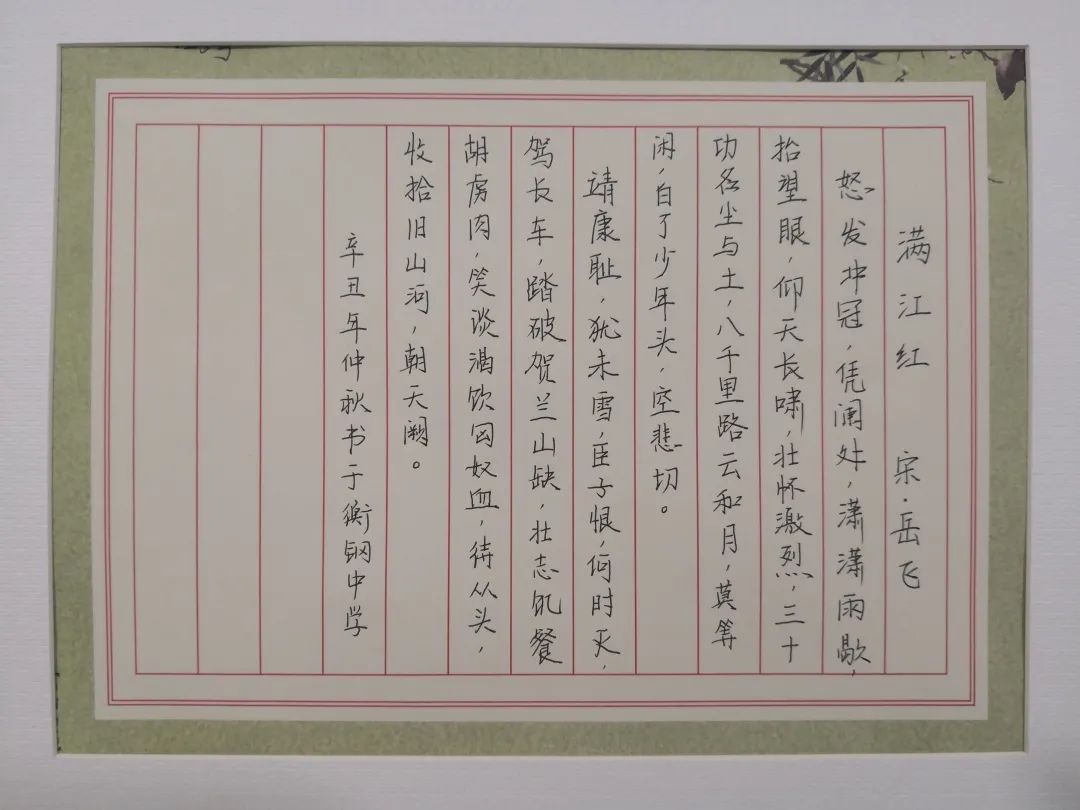 满江红 宋·岳飞
怒发冲冠，凭阑处，潇潇雨歇，
抬望眼，仰天长啸，壮怀激烈，三十
功名尘与土，八千里路云和月，莫等
闲，白了少年头，空悲切。
靖康耻，犹未雪，臣子恨，何时灭，
驾长车，踏破贺兰山缺，壮志饥餐
胡虏肉，笑谈渴饮匈奴血，待从头，
收拾旧山河，朝天阙。
辛丑年仲秋书于衡钢中学